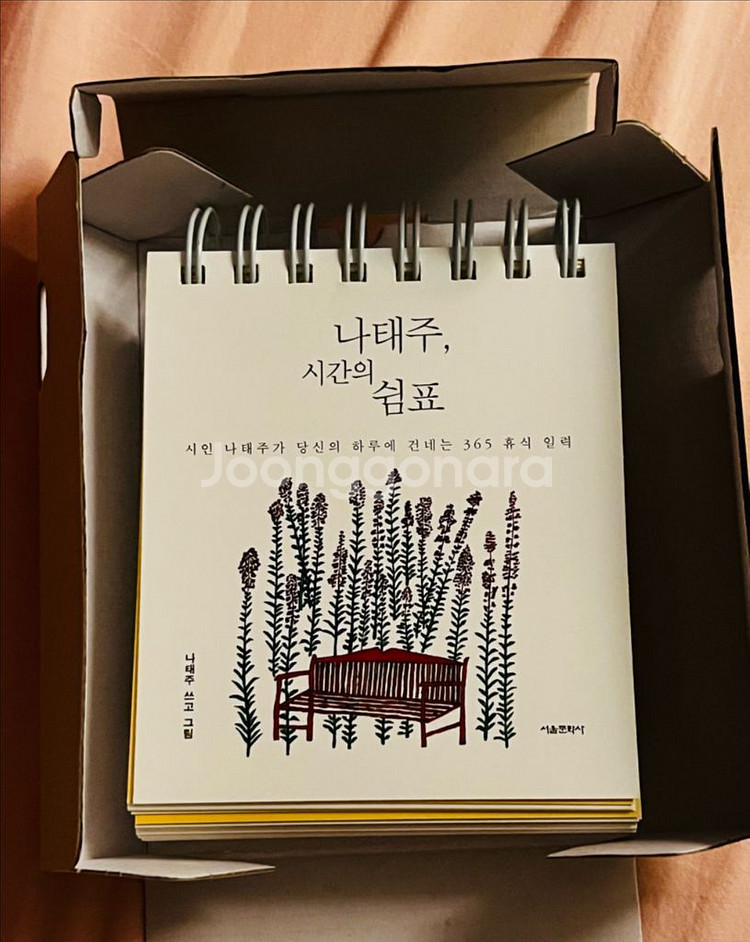 나태주,
시간의
쉼표
시인 나태주가 당신의 하루에 건네는 365 휴식 일력
Joonggonara
나태주 쓰고 그림
서울문화사